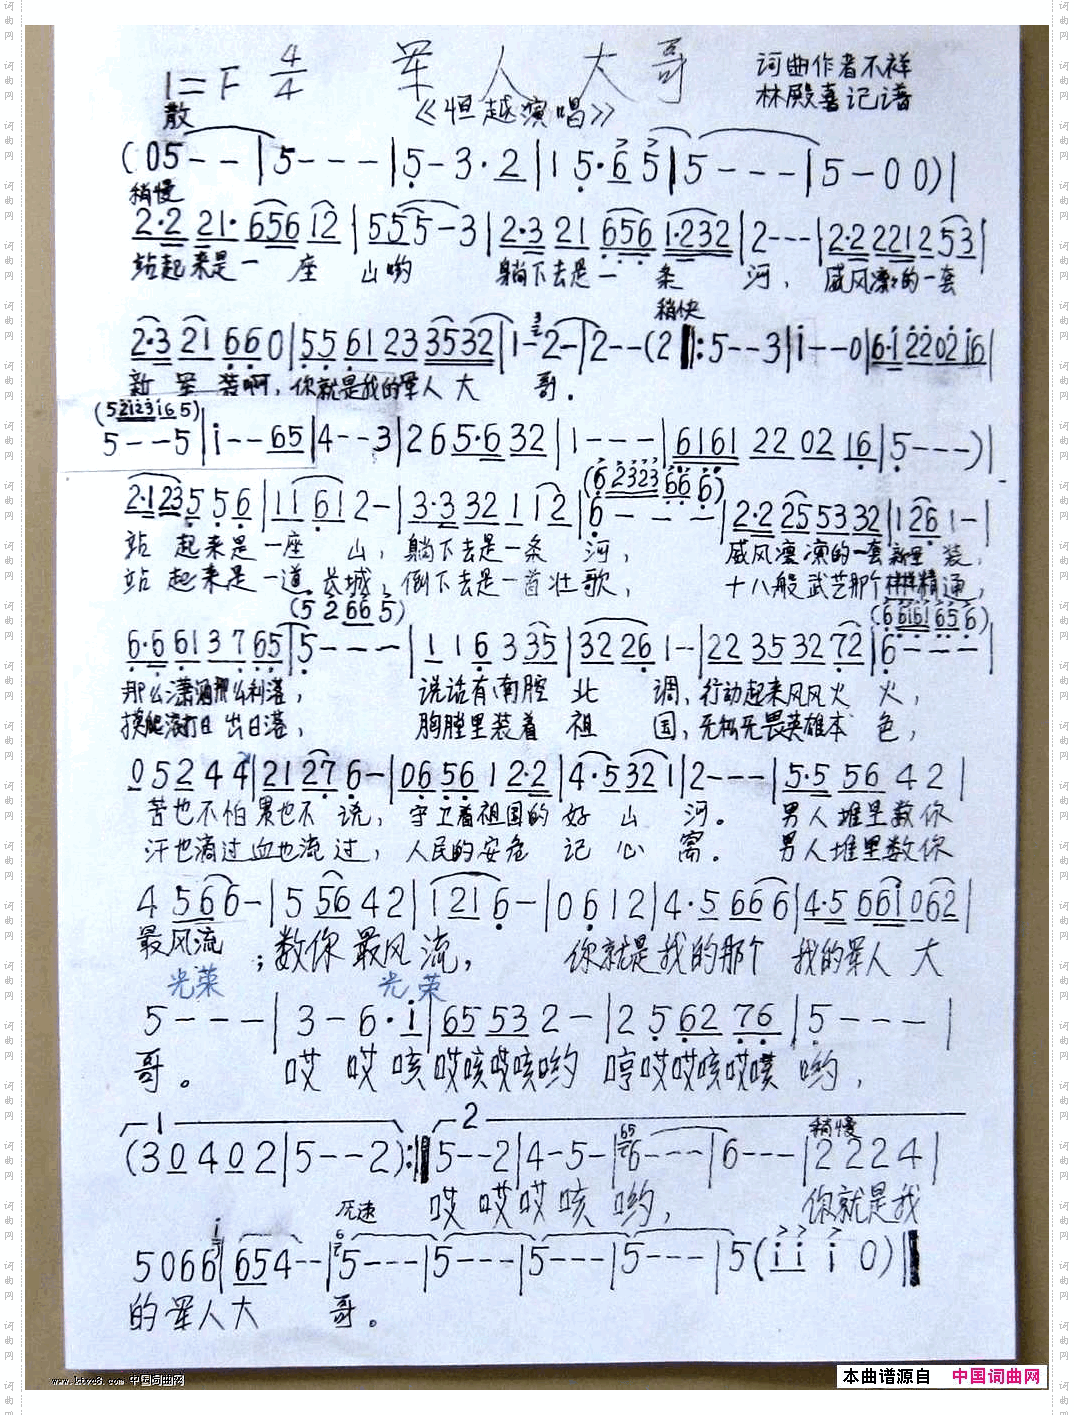 军人大哥
1=F 4/4
词曲作者不祥
林殿喜记谱
《恒越演唱》
散
(05--|5---|5-3·2|15·65|5---|5-00)|
稍慢
2·2 21·656 12|555-3|2·3 21 656 1·232|2---|2·2 2212 53|
站起来是一座山哟 躺下去是一条河，威风凛凛的一套
稍快
2·3 21 660|55 61 23 3532|1-2-|2--(2‖:5--3|i--0|6·i 22 02 i6|
新军装啊，你就是我的军人大哥。
(52i23i65)
5--5|i--65|4--3|2 6 5·6 32|1---|6161 22 02 16|5---)|
(6 2323 66 6)
2·123 5 5 6|11 61 2-|3·3 32 1 12|6---|2·2 25 53 32|1 26 1-|
站起来是一座山，躺下去是一条河，威风凛凛的一套新军装，
站起来是一道长城，倒下去是一首壮歌，十八般武艺那个样样精通，
(5 2 66 5)
(6 6161 65 6)
6·6 61 3 7 65|5---|1 1 6 3 35|32 26 1-|22 35 32 72|6---|
那么潇洒那么利落，说话有南腔北调，行动起来风风火火，
摸爬滚打日出日落，胸膛里装着祖国，无私无畏英雄本色，
0 5 2 4 4|21 27 6-|06 56 1 2·2|4·5 32 1|2---|5·5 56 4 2|
苦也不怕累也不说，守卫着祖国的好山河。男人堆里数你
汗也淌过血也流过，人民的安危记心窝。男人堆里数你
4 56 6-|5 56 4 2|1 21 6-|0 6 1 2|4·5 66 6|4·5 66i 0 62|
最风流；数你最风流，你就是我的那个我的军人大
光荣 光荣
5---|3-6·i|65 53 2-|2 5 62 76|5---|
哥。哎哎咳哎咳哎咳哟哼哎哎咳哎噗哟，
1 2
稍慢
(3 0 4 0 2|5--2):‖5--2|4-5-|6---|6---|2 2 2 4|
哎哎哎咳哟，你就是我
5 0 6 6|65 4--|5---|5---|5---|5---|5(i i i 0)‖
的军人大哥。
www.ktvc8.com 中国词曲网
本曲谱源自 中国词曲网